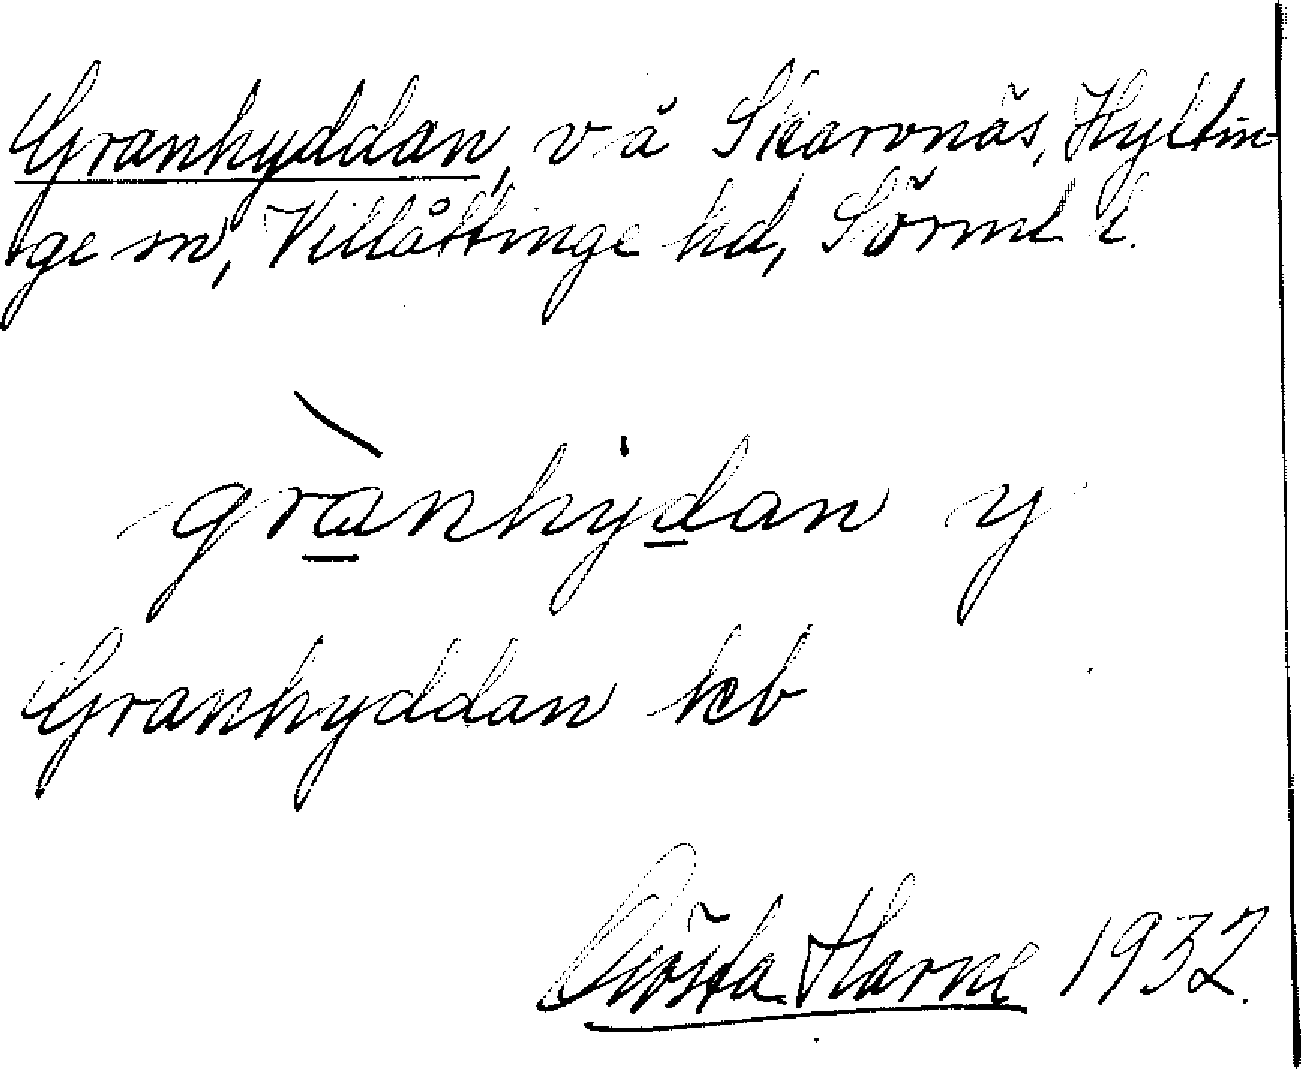 Granhyddan, v å Skarvnäs, Hyltin-
ge sn, Villåttinge hd, Sörml l.
grànhydan y
Granhyddan kb
Gösta Harne 1932.